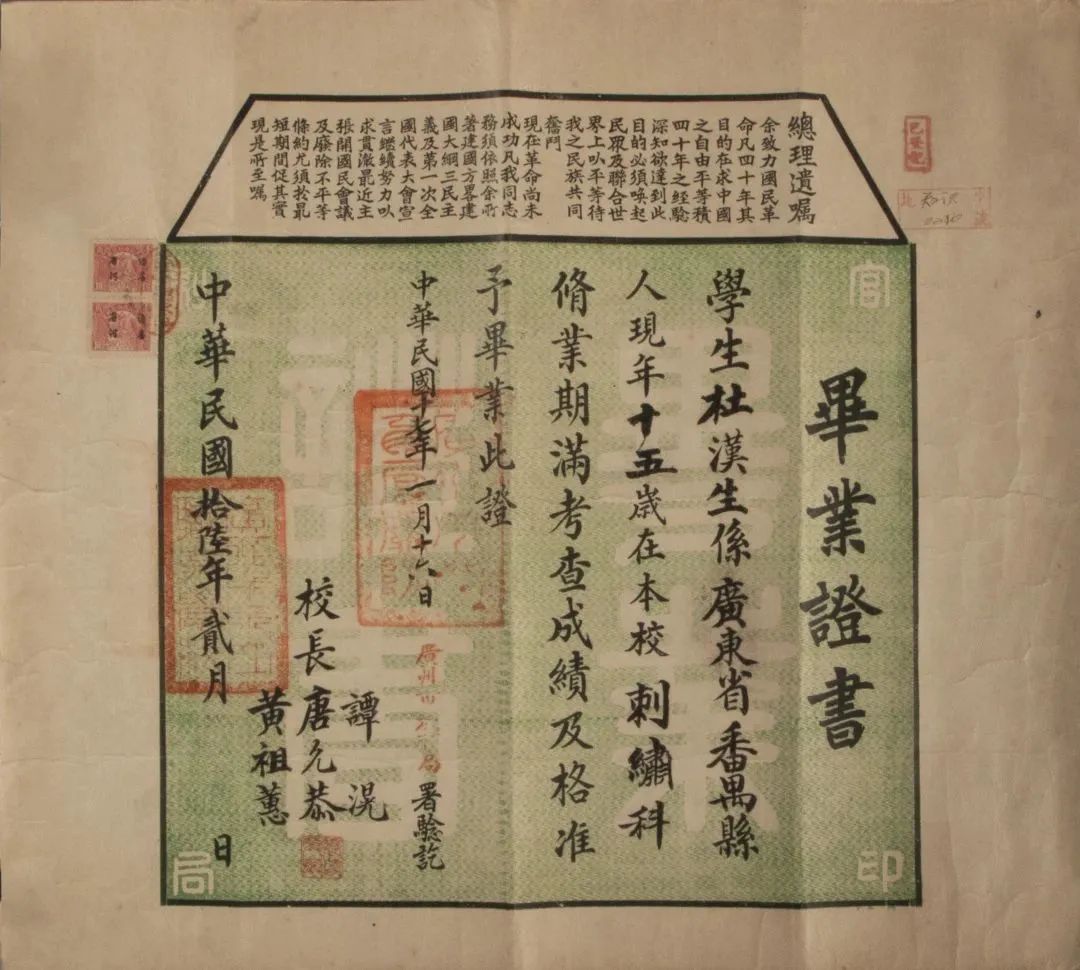 總理遺囑
余致力國民革
命凡四十年其
目的在求中國
之自由平等積
四十年之經驗
深知欲達到此
目的必須喚起
民眾及聯合世
界上以平等待
我之民族共同
奮鬥
現在革命尚未
成功凡我同志
務須依照余所
著建國方畧建
國大綱三民主
義及第一次全
國代表大會宣
言繼續努力以
求貫澈最近主
張開國民會議
及廢除不平等
條約尤須於最
短期間促其實
現是所至囑
畢業證書
學生杜漢生係廣東省番禺縣
人現年十五歲在本校刺繡科
脩業期滿考查成績及格准
予畢業此證
中華民國十七年一月十六日
廣州 局署驗訖
譚滉
校長唐允恭
黃祖蕙
中華民國拾陸年貳月 日
官
印
局